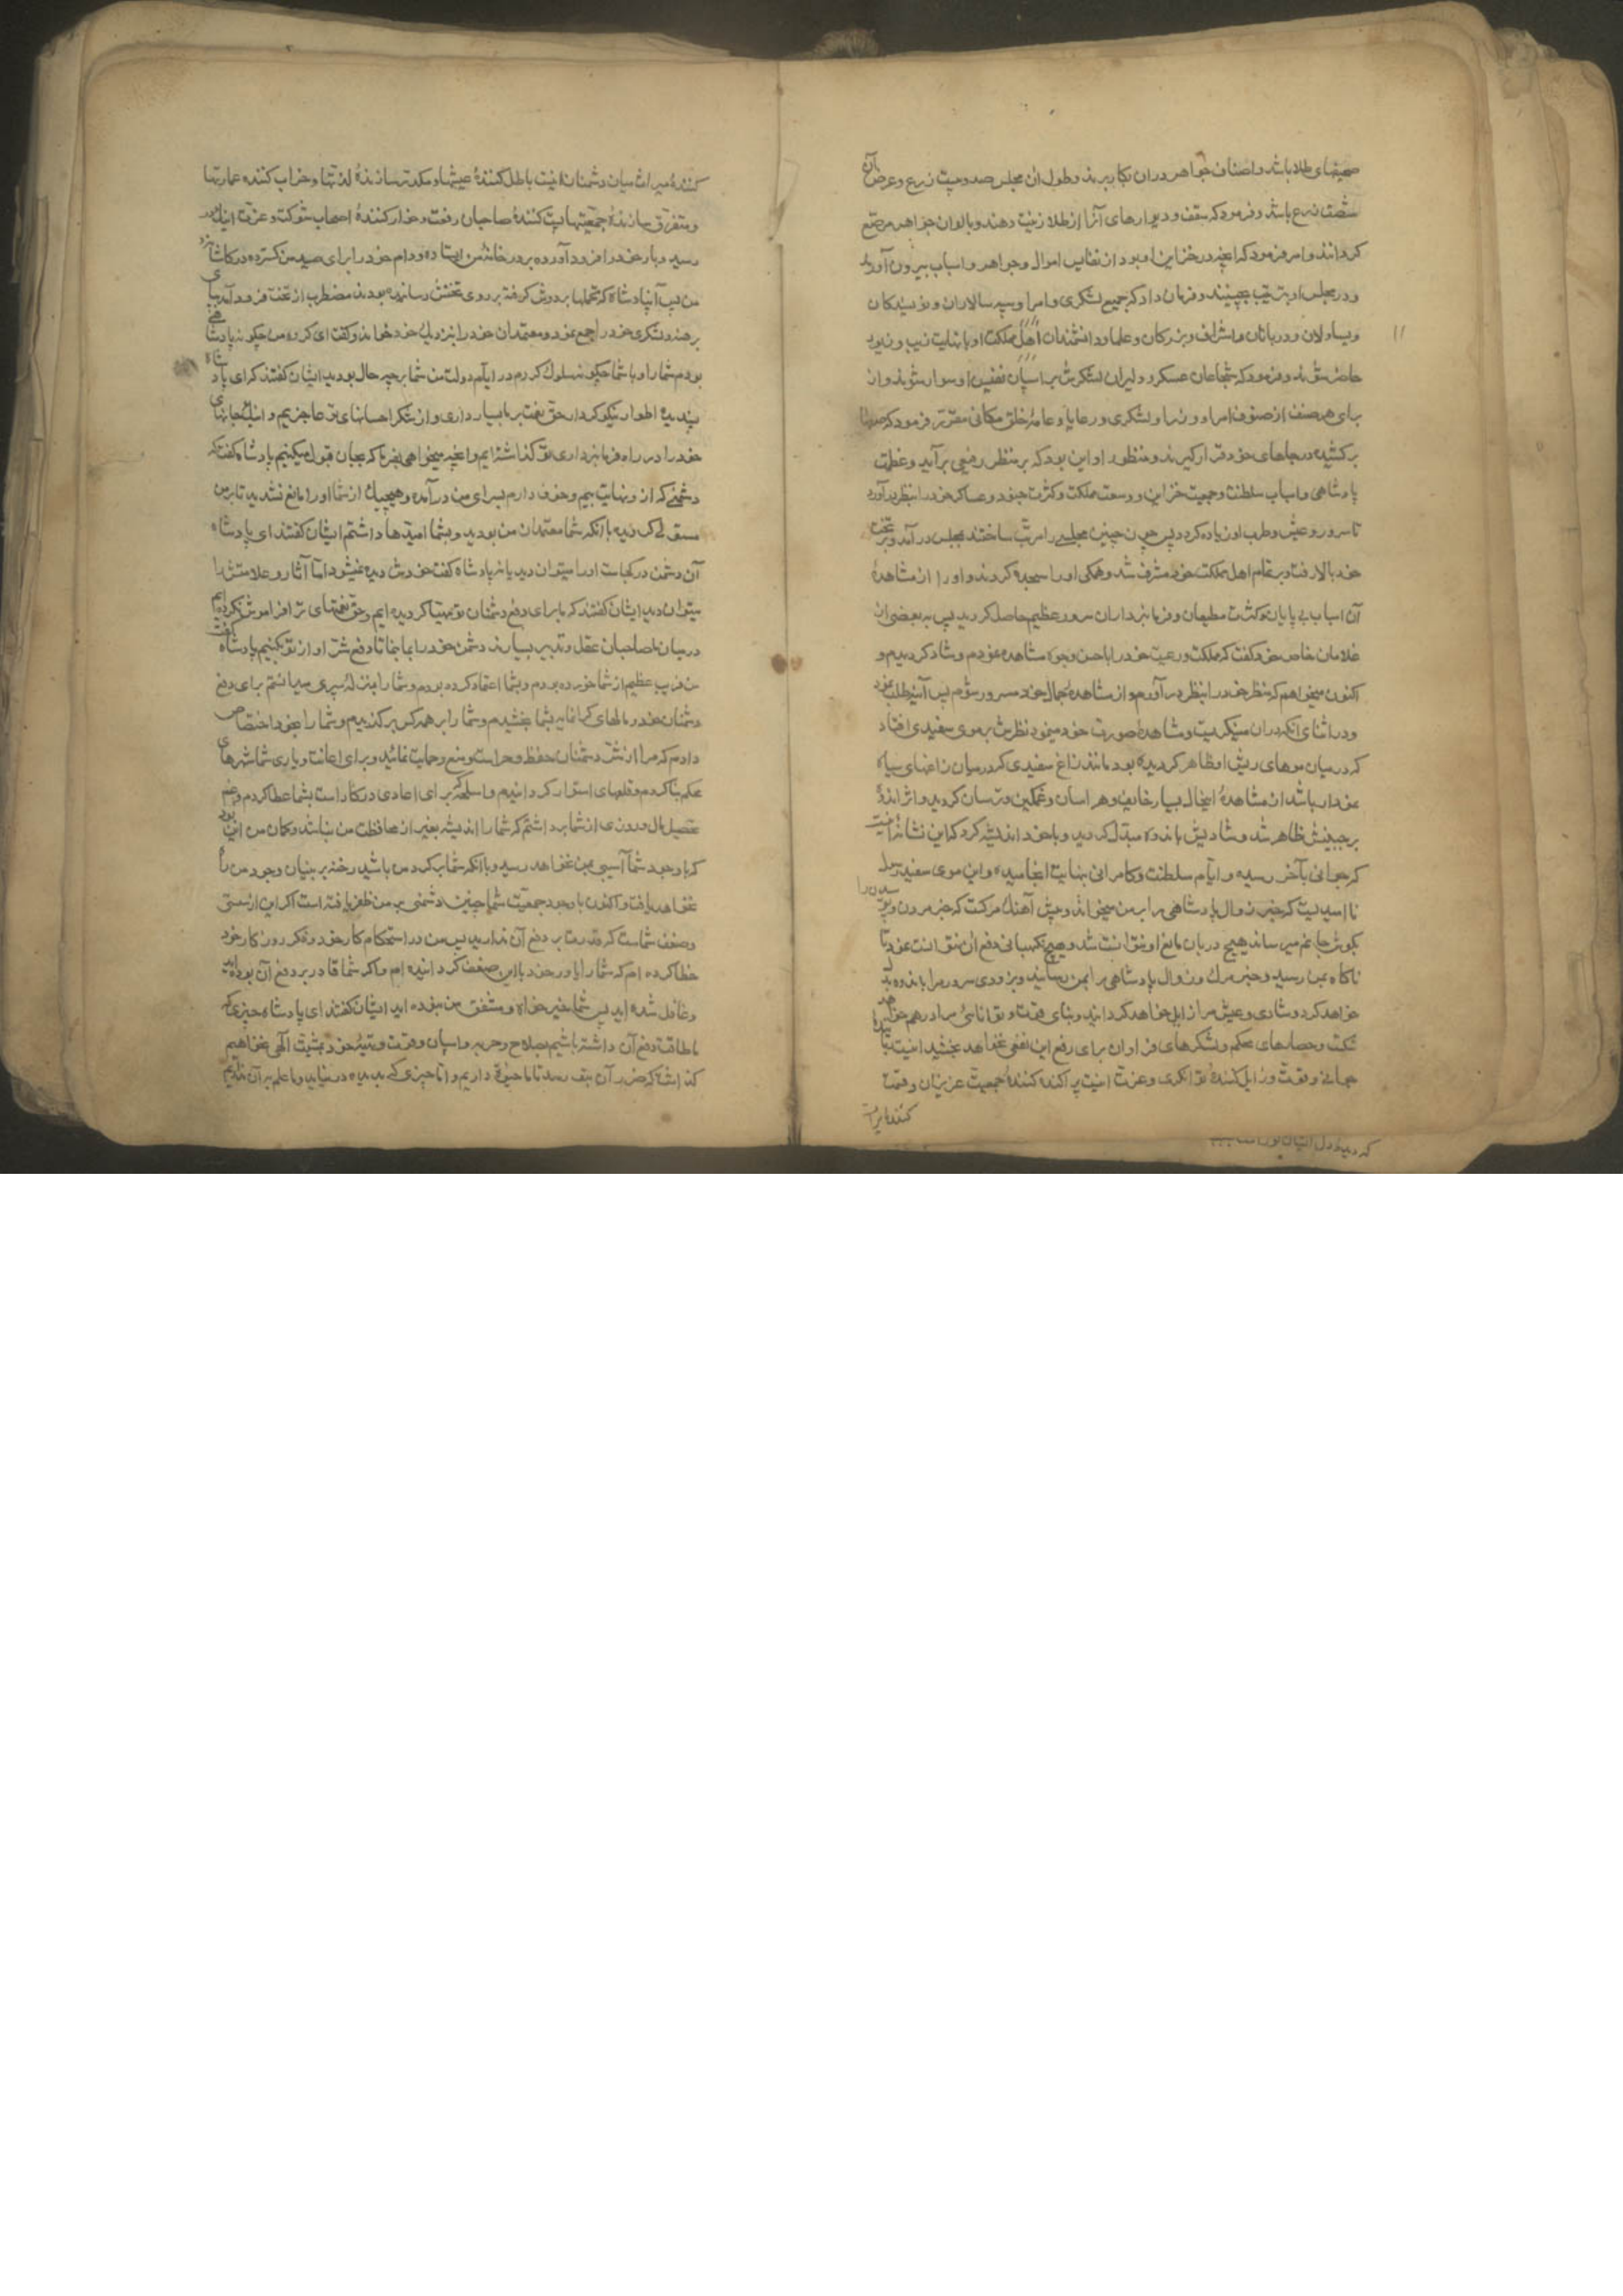 صحیفهای طلا باشد و اصناف جواهر در ان بکار برند و طول ان مجلس صد و بیست ذرع و عرض آن
شصت ذرع باشد و فرمود که سقف و دیوارهای آنرا از طلا زینت دهند و بالوان جواهر مرصّع
کردانند و امر فرمود که انچه در خزاین او بود از نفایس اموال و جواهر و اسباب بیرون آورند
و در مجلس او بترتیب بچینند و فرمان داد که جمیع لشکری و امرا و سپه سالاران و نویسندکان
و یساولان و دربانان و اشراف و بزرکان و علما و دانشمندان اهل مملکت او با نهایت زیب و زیور
حاضر شوند و فرمود که شجاعان عسکر و دلیران لشکرش بر اسپان نفیس او سوار شوند و از
برای هر صنف از صنوف امرا و وزرا و لشکری و رعایا و عامهٔ خلق مکانی مقرّر فرمود که صفها
برکشیده در جاهای خود قرار کیرند و منظور او این بود که بر منظر رفیعی برآید و عظمت
پادشاهی و اسباب سلطنت و جمعیت خزاین و وسعت مملکت و کثرت جنود و عساکر خود را بنظر درآورد
تا سرور و عیش و طرب او زیاده کردد پس چون چنین مجلسی را مرتّب ساختند بمجلس در آمد و بر تخت
خود بالا رفت و بر تمام اهل مملکت خود مشرف شد و همکی او را سجده کردند و او را از مشاهدهٔ
آن اسباب بی پایان و کثرت مطیعان و فرمانبرداران سرور عظیم حاصل کردید پس به بعضی از
غلامان خاص خود کفت که مملکت و رعیت خود را باحسن وجوه مشاهده نمودم و شاد کردیدم و
اکنون میخواهم که منظر خود را بنظر در آورم و از مشاهدهٔ جمال خود مسرور شوم پس آئینه طلب نمود
و در اثنای انکه در ان مینکریست و مشاهدهٔ صورت خود مینمود نظرش بر موی سفیدی افتاد
که در میان موهای ریش او ظاهر کردیده بود مانند زاغ سفیدی که در میان زاغهای سیاه
نمودار باشد از مشاهدهٔ اینحال بسیار خایف و هراسان و غمکین و ترسان کردید و اثر اندوه
بر جبینش ظاهر شد و شادیش باندوه مبدّل کردید و با خود اندیشه کرد که این نشانهٔ انست
که جوانی بآخر رسیده و ایّام سلطنت و کامرانی بنهایت انجامیده و این موی سفید رسول
نا امیدیست که خبر زوال پادشاهی را بر من میخواند و پیش آهنک مرکست که خبر مردن و پوسیدن را
بکوش جانم میرساند هیچ دربان مانع او نتوانست شد و هیچ نکهبانی دفع ان نتوانست نمود تا
ناکاه بمن رسید و خبر مرک و زوال پادشاهی را بمن رسانید و بزودی سرور مرا باندوه بدل
خواهد کرد و شادی و عیش مرا زایل خواهد کردانید و بنای قوّت و توانائی مرا درهم خواهد
شکست و حصارهای محکم و لشکرهای فراوان برای رفع این نفعی نخواهد بخشید اینست ربایندهٔ
جوانی و قوّت و زایل کنندهٔ توانکری و عزّت اینست پراکنده کنندهٔ جمعیت عزیزان و قسمت
کنندهٔ میراث
کنندهٔ میراث میان دشمنان اینست باطل کنندهٔ عیشها و مکدّر سازندهٔ لذتها و خراب کننده عمارتها
و متفرّق سازندهٔ جمعیّتها پست کنندهٔ صاحبان رفعت و خوار کنندهٔ اصحاب شوکت و عزّت اینک در
رسید و بار خود را فرود آورده بر در خانهٔ من ایستاده و دام خود را برای صید من کسترده در کاشانهٔ
من پس آن پادشاه که تجملها بر دوش کرفته بر روی تختش رسانیده بودند مضطرب از تخت فرود آمد بپای
برهنه و لشکری خود را جمع نمود و معتمدان خود را بنزدیک خود خواند و کفت ای کروه من چکونه پادشاهی
بودم شما را و با شما چکونه سلوک کردم در ایّام دولت من شما بر چه حال بودید ایشان کفتند که ای پادشاه
پسندیده اطوار نیکو کردار حق نعمت بر ما بسیار داری و از شکر احسانهای تو عاجزیم و اینک جانهای
خود را در راه فرمانبرداری تو کذاشته ایم و انچه میخواهی بفرما که بجان قبول میکنیم پادشاه کفت که
دشمنی که از او نهایت بیم و خوف دارم بسرای من درآمده و هیچیک از شما او را مانع نشدید تا بر من
مستولی کردیده با انکه شما معتمدان من بودید و بشما امیدها داشتم ایشان کفتند ای پادشاه
آن دشمن در کجاست او را میتوان دید یا نه پادشاه کفت خودش دیده نمیشود امّا آثار و علامتش را
میتوان دید ایشان کفتند که ما برای دفع دشمنان تو مهیّا کردیده ایم و حق نعمتهای ترا فراموش نکرده ایم
در میان ما صاحبان عقل و تدبیر بسیارند دشمن خود را بما بنما تا دفع شرّ او از تو بکنیم پادشاه کفت
من فریب عظیم از شما خورده بودم و بشما اعتماد کرده بودم و شما را بمنزلهٔ سپری میدانستم برای دفع
دشمنان خود و مالهای کرانمایه بشما بخشیدم و شما را بر همه کس برکزیدم و شما را بخود اختصاص
دادم که مرا از شرّ دشمنان حفظ و حراست و منع و حمایت نمائید و برای اعانت و یاری شما شهرهای
محکم بنا کردم و قلعهای استوار کردانیدم و اسلحه که برای اعادی درکار است بشما عطا کردم و غم
تحصیل مال و روزی از شما برداشتم که شما را اندیشه بغیر از محافظت من نباشد و کمان من این بود
که با وجود شما آسیبی بمن نخواهد رسید و با انکه شما بر کرد من باشید رخنه بر بنیان وجود من راه
نخواهد یافت و اکنون با وجود جمعیّت شما چنین دشمنی بر من ظفر یافته است اکر این از سستی
و ضعف شماست که قدرت بر دفع آن ندارید پس من در استحکام کار خود و فکر روزکار خود
خطا کرده ام که شما را یاور خود با این ضعف کردانیده ام و اکر شما قادر بر دفع آن بوده اید
و غافل شده اید پس شما خیر خواه و مشفق من نبوده اید ایشان کفتند ای پادشاه چیزی که
ما طاقت دفع آن داشته باشیم بسلاح و حربه و اسپان و قوّت و تهیّهٔ خود بمشیّت الهی نخواهیم
کذاشت که ضرر آن بتو رسد تا ما حیوة داریم و امّا چیزی که بدیده در نیاید و ما علم بر آن نداریم